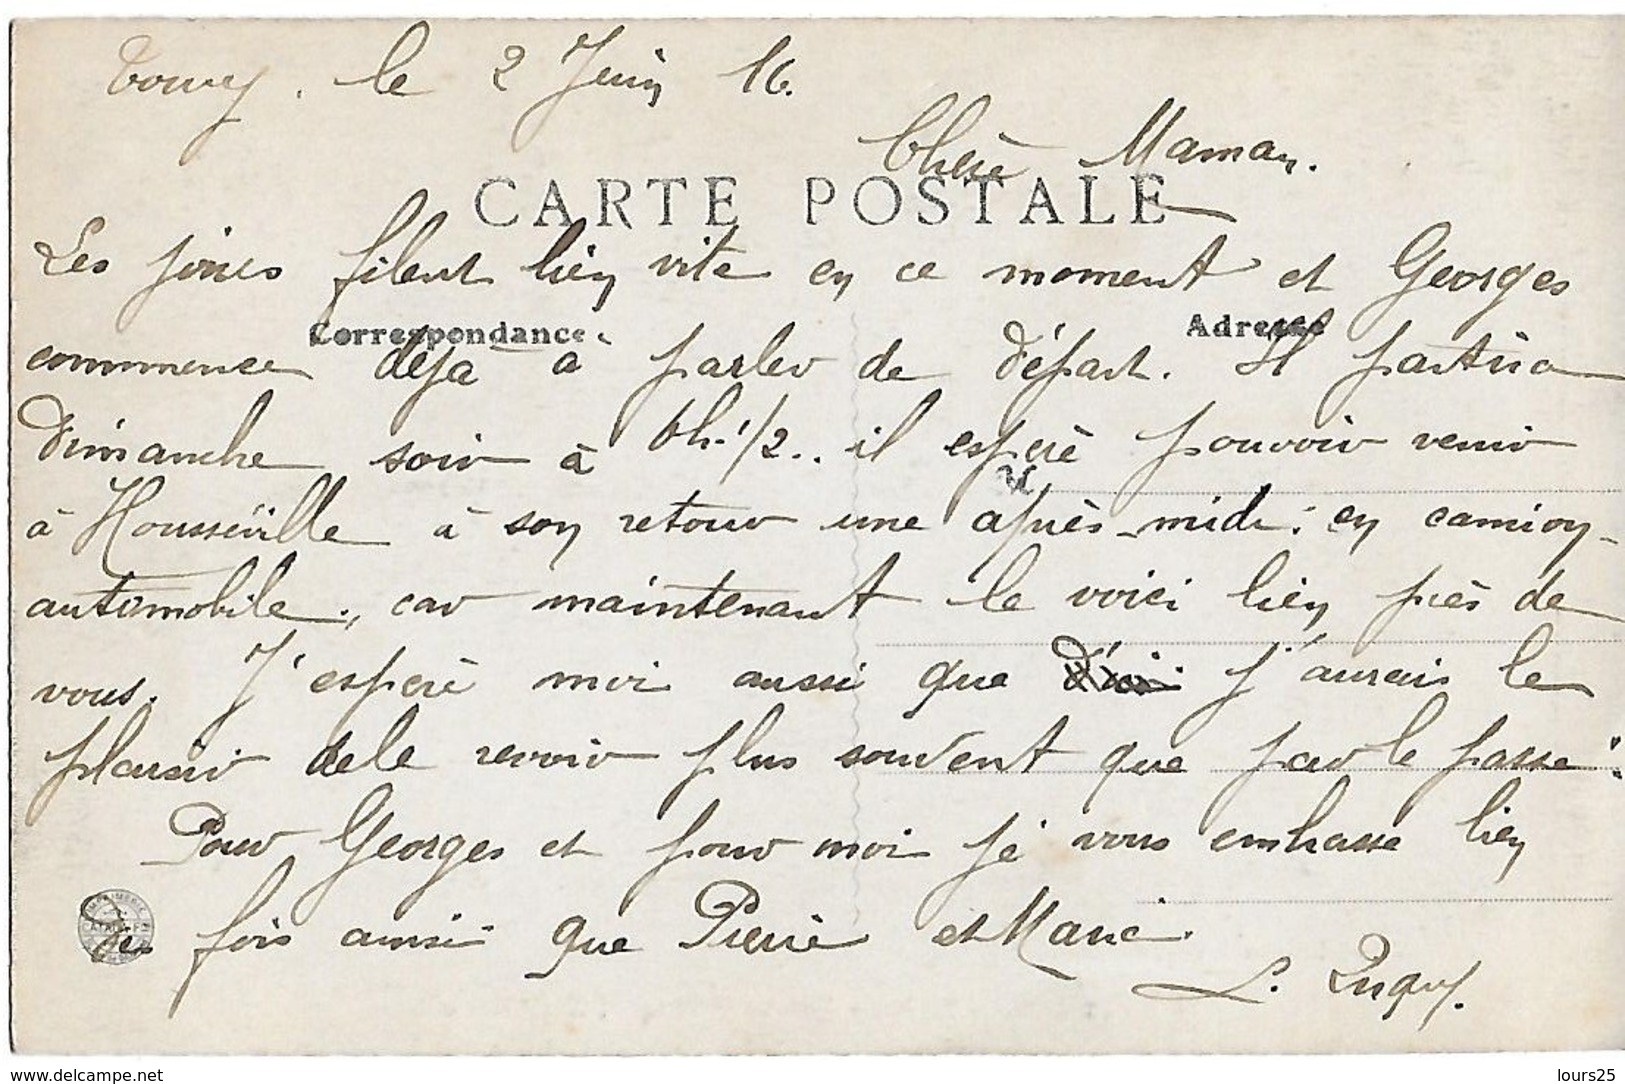 le 2 Juin 16.
Chère Maman.
CARTE POSTALE
Les jours filent bien vite en ce moment et Georges
Correspondance Adresse
commence déjà à parler de départ. Il partira
Dimanche soir à 6h.1/2.. il espère pouvoir venir
à Housséville à son retour une après-midi : en camion-
automobile., car maintenant le voici bien près de
vous. J'espère moi aussi que j'aurais le
plaisir de le revoir plus souvent que par le passé.
Pour Georges et pour moi je vous embrasse bien
des fois ainsi que Pierre et Marie.
L.
www.delcampe.net
lours25